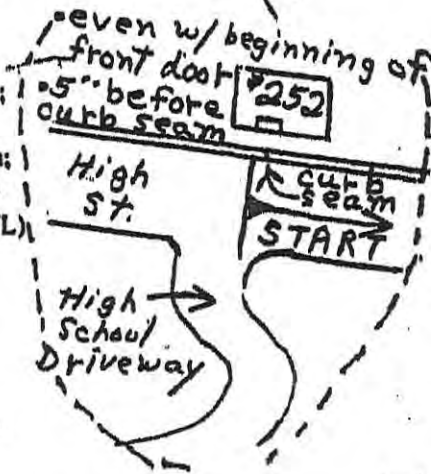 • even w/ beginning of
front door
• 5" before
curb seam
#252
High
St.
curb
seam
START
L)
High
School
Driveway